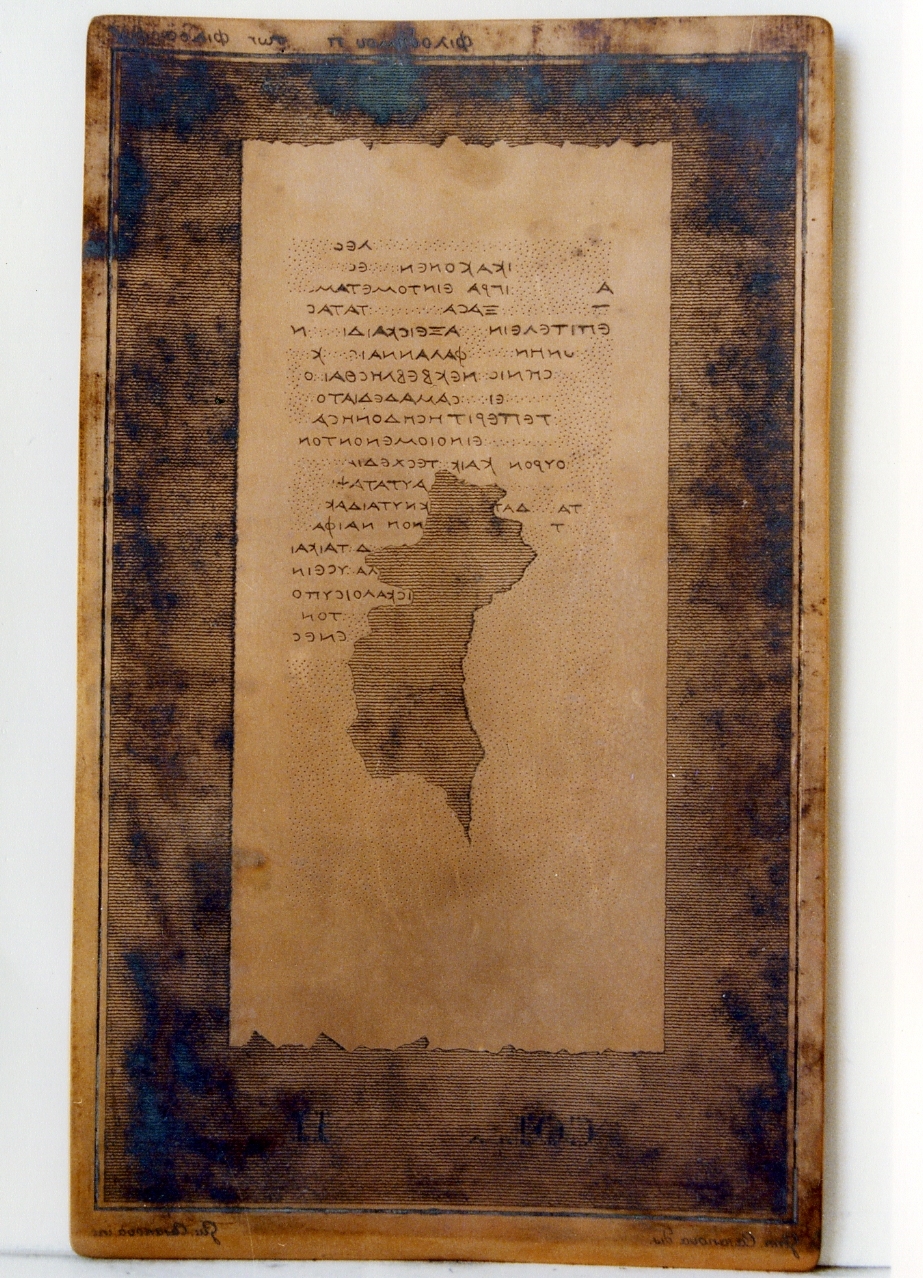 φιλοδημου π των φιλοσοφων
ΛΕϹ
ΙΚΑΚΟΝΕΝ ΕϹ
Α ΙΓΡΑ ΕΙΝΤΟΜΕΤΑΜ
Τ ΞΑϹΑ ΤΑΤΑϹ
ΕΠΙΤΕΛΕΙΝ ΑΞΕΙϹΚΑΙΔΙ Ν
ΥΗΗΝ ΦΑΛΑΝΝΑΙϹ Κ
ϹΗΝΙϹ ΝΕΚΒΕΒΛΗϹΘΑΙ Ο
ΕΙ ϹΑΜΑΔΕΔΙΑΤΟ
ΤΕΠΕΡΙΤΗϹΗΔΟΝΗϹΑ
ΕΙΝΟΙΟΜΕΝΟΝΤΟΝ
ΟΥΡΟΝ ΚΑΙΚ ΤΕϹΧΕΔΙ
ΑΥΤΑΤΑΨ
ΤΑ ΔΑΤ ΚΝΥΤΑΙΔΑΚ
Τ ΝΟΝ ΝΑΙΦΑ
Δ ΤΑΙΚΑΙ
ΛΑ ΥϹΕΙΝ
ΙϹΚΑΛΟΙϹΥΠΟ
ΤΟΝ
ϹΝΕϹ
COL. 11
Casanova dis. Casanova in.